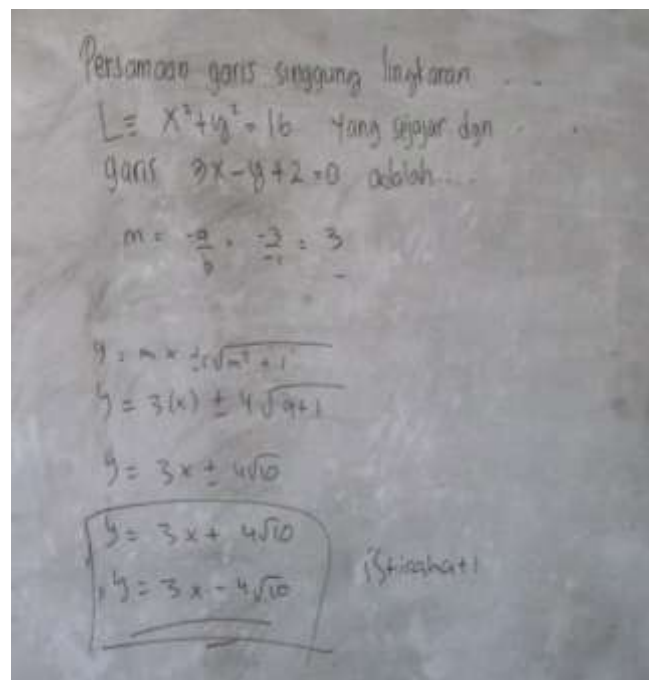 Persamaan garis singgung lingkaran ...
L ≡ x² + y² = 16 yang sejajar dgn
garis 3x - y + 2 = 0 adalah ...
m = -a/b = -3/-1 = 3
y = mx ± r√m² + 1
y = 3(x) ± 4√9+1
y = 3x ± 4√10
y = 3x + 4√10
y = 3x - 4√10
istirahat!